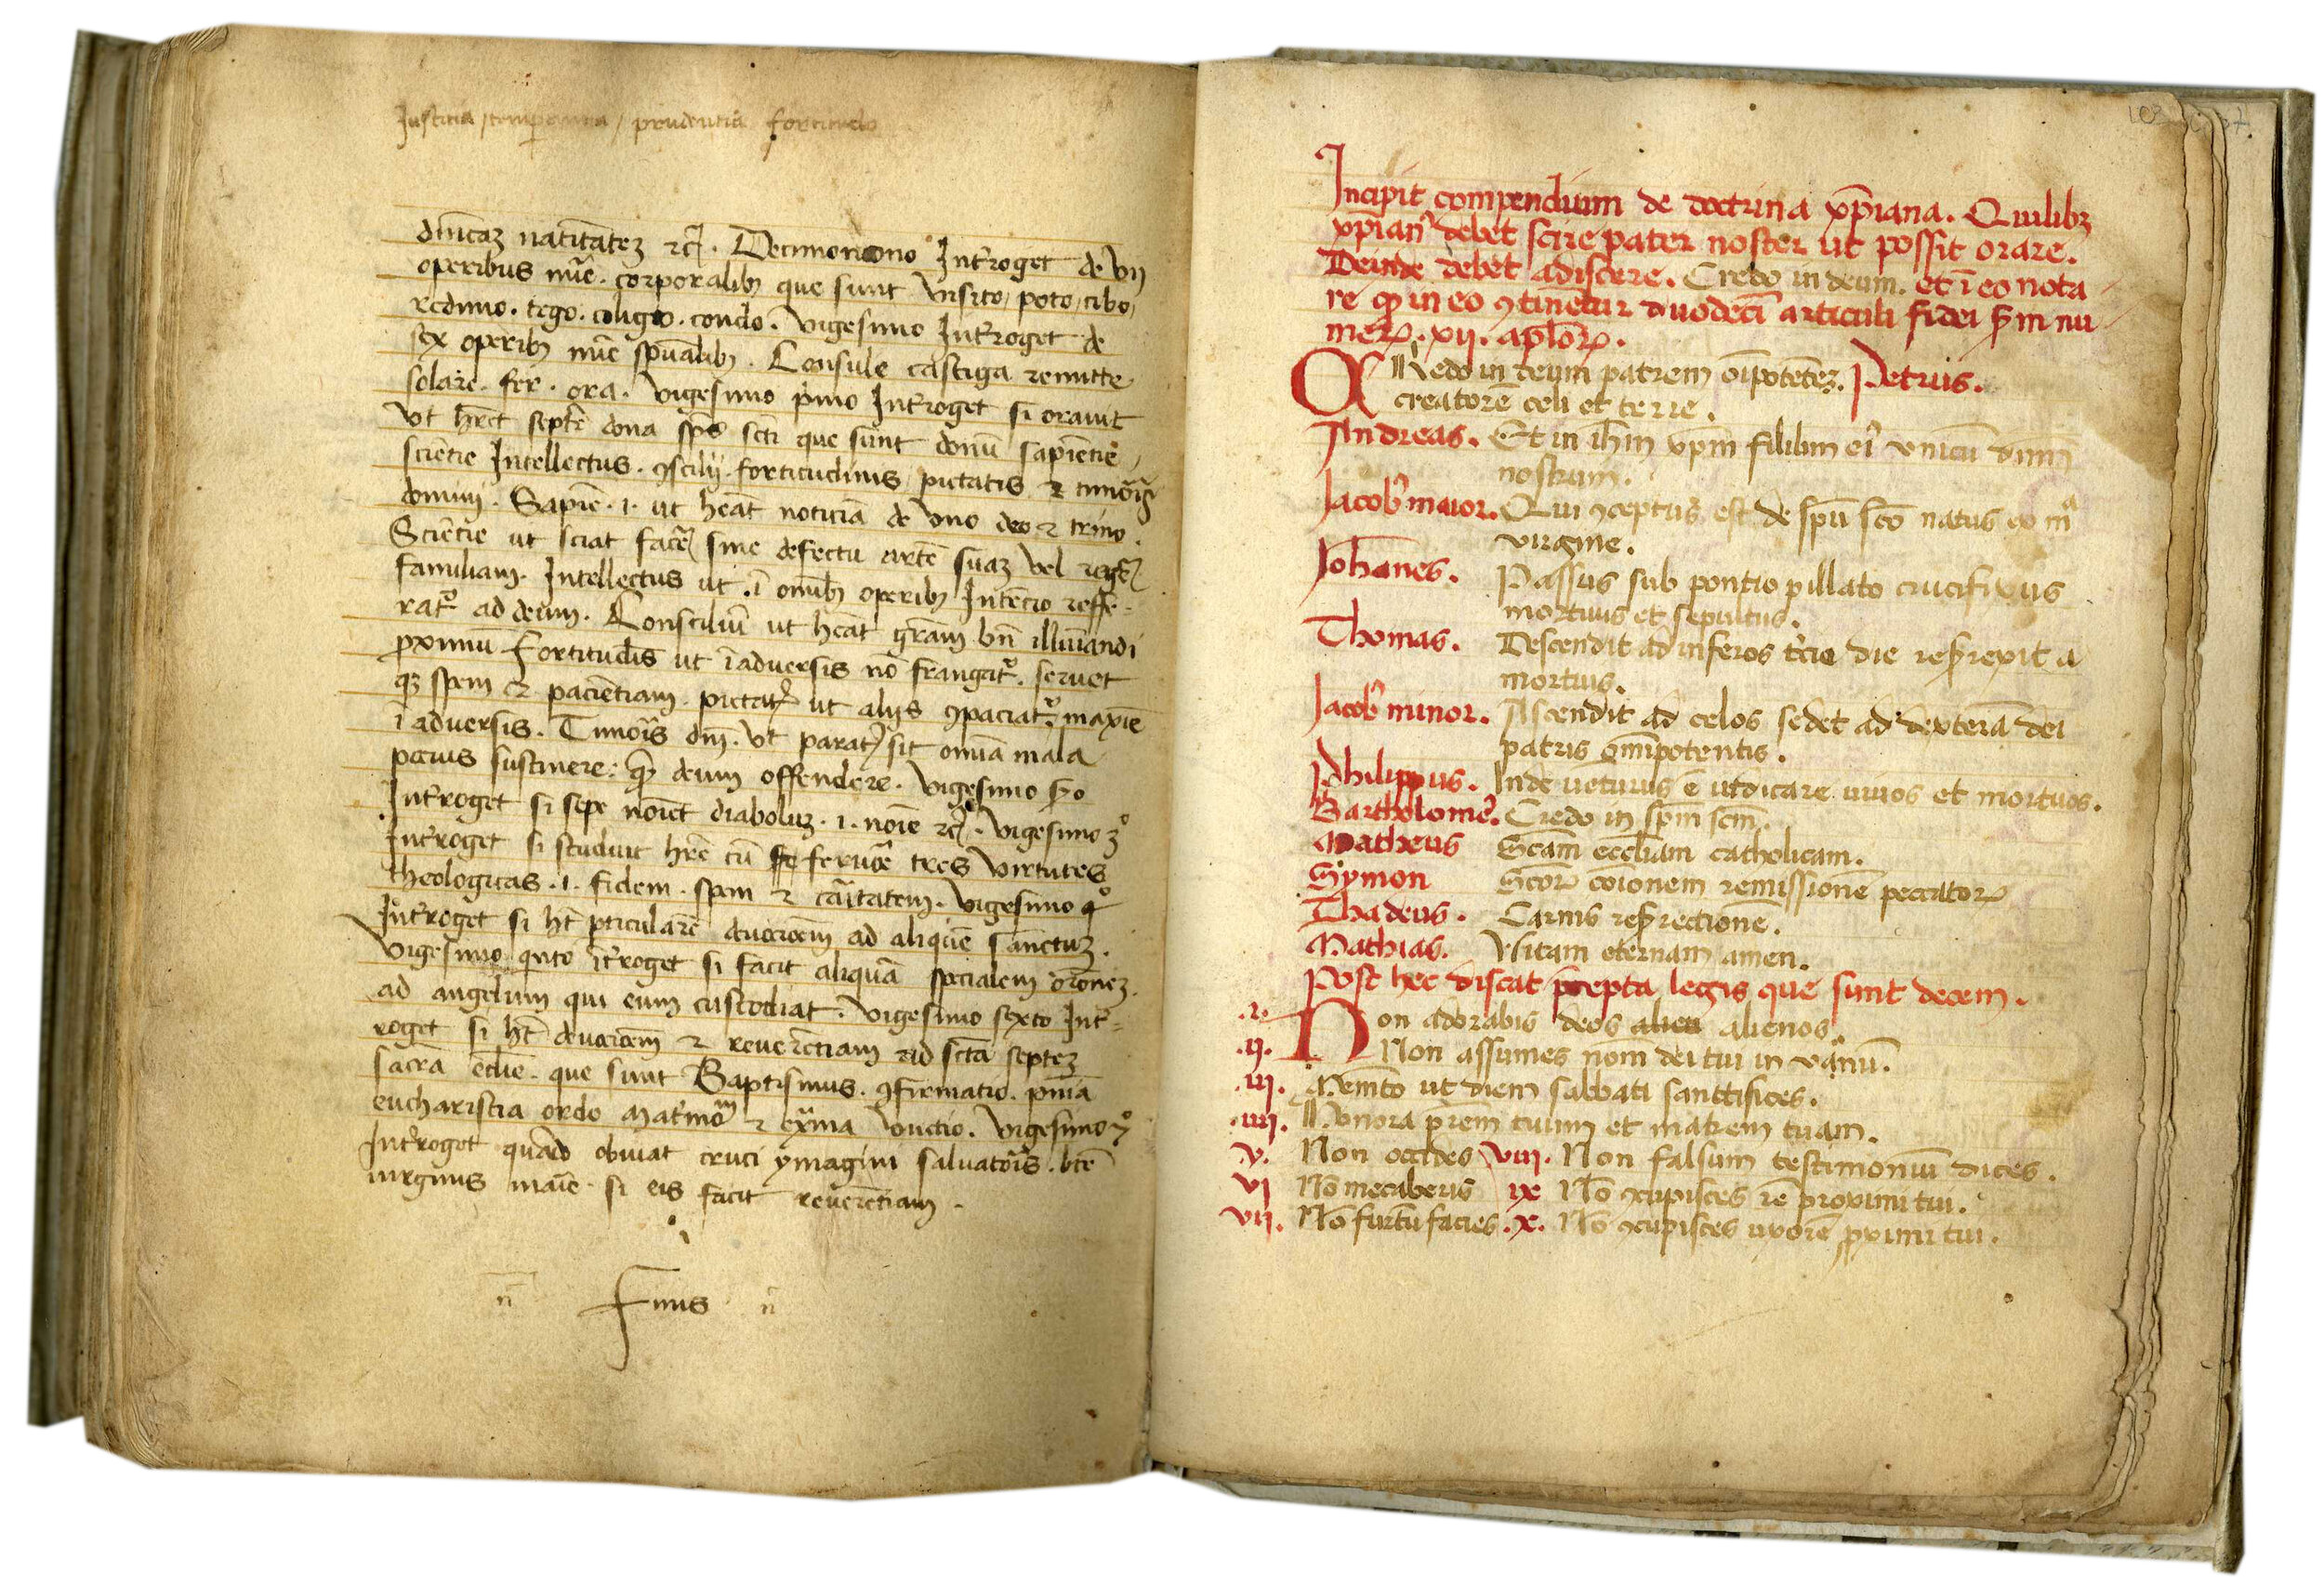 Justicia / temperantia / prudentia fortitudo
diuicaz natiuitatez rcʒ. Decimonono Introget de VII
operibus mīe. corporalibꝫ que sunt Visito / poto / cibo /
redimo. tego. coligo. condo. Vigesimo Introget de
sex operibꝫ mīe spūalibꝫ. Consule castiga remitte
solare. fer. ora. Vigesimo pimo Introget si orauit
Vt hret septē dona spūs scti que sunt donū sapientie /
scientie Intellectus. ꝯscilij. fortitudinis pietatis ⁊ timoris
domini. Sapiē. i. ut heat noticiā de Vno deo ⁊ trino.
Scientie ut sciat facer sine defectu artē suaz vel reger
familiam. Intellectus ut ī omībꝫ operibꝫ Intēcio reffe-
rat' ad deum. Consciliuī ut heāt grām bn̄ illuīandi
pximu Fortitudīs ut ī aduersis nō frangat'. seruet
qꝫ spem ⁊ pacientiam. pietatꝭ ut alijs ꝯpaciat'. maxīe
ī aduersis. Timoris dm̄. Vt parat' sit omīa mala
pocius sustinere: qꝫ deum offendere. Vigesimo ẜo
Introget si sepe noīet diabolum. i. noīe rcʒ. Vigesimo 3°
Introget si studuit hrē cū feruore tres Virtutes
theologicas. i. fidem. spem ⁊ caritatem. Vigesimo 4°
Introget si ht pticularē deuocioēm ad aliquē sanctuz.
Vigesimo qnto ītroget si facit aliquā specialem oronez.
ad angelum qui eum custodiat. Vigesimo sexto Int-
roget si ht deuocioēm ⁊ reuerētiam ad scta septez
sacrā ecclie. que sunt Baptismus. ꝯfirmatio. pniā
eucharistia ordo matrimō ⁊ exma Vnctio. Vigesimo 7°
Introget quādo obuiat cruci ymagini saluatoris. bte
uirginis marie. si eis facit reuerētiam.
n̄ Finis n̄
Incipit compendium de doctrina xp̄iana. Quilibꝫ
xp̄ian' debet scire pater noster ut possit orare.
Deinde debet adiscere. Credo in deum. et ī eo nota
re qꝫ in eo ꝯtinetur duodeci articuli fidei ẜm nu
meꝝ. xij. apl̄oꝝ.
CRedo in deum patrem oīpotētez. Petrus.
creatorē celi et terre.
Andreas. Et in ihm xpm filium ei' vnicū dnm̄
nostrum.
Jacob' maior. Qui ꝯceptus est de spū sco natus ex mª
virgine.
Johanes. Passus sub pontio pillato crucifixus
mortuus et sepultus.
Thomas. Descendit ad inferos tcia die resurexit a
mortuis.
Jacob' minor. Ascendit ad celos sedet ad dexterā dei
patris omīpotentis.
Philippus. Inde ueturus ē iudicare uiuos et mortuos.
Bartholome'. Credo in spm̄ scm̄.
Matheus Scām ecclīam catholicam.
Symon Scoꝝ coīonem remissionē peccatoꝝ
Thadeus. Carnis resurectionē.
Mathias. Vitam eternam amen.
Post hec discat pcepta legis que sunt decem.
.i. Non adorabis deos alien alienos.
.ij. Non assumes nom dei tui in vanū.
.iij. Memēto ut diem sabbati sanctifices.
.iiij. Honora prem tuum et matrem tuam.
v. Non occides viij. Non falsum testimoniū dices.
vi Nō mecaberis ix Nō ꝯcupisces rē proximi tui.
vij. Nō furtū facies. x. Nō ꝯcupisces uxorē pximi tui.